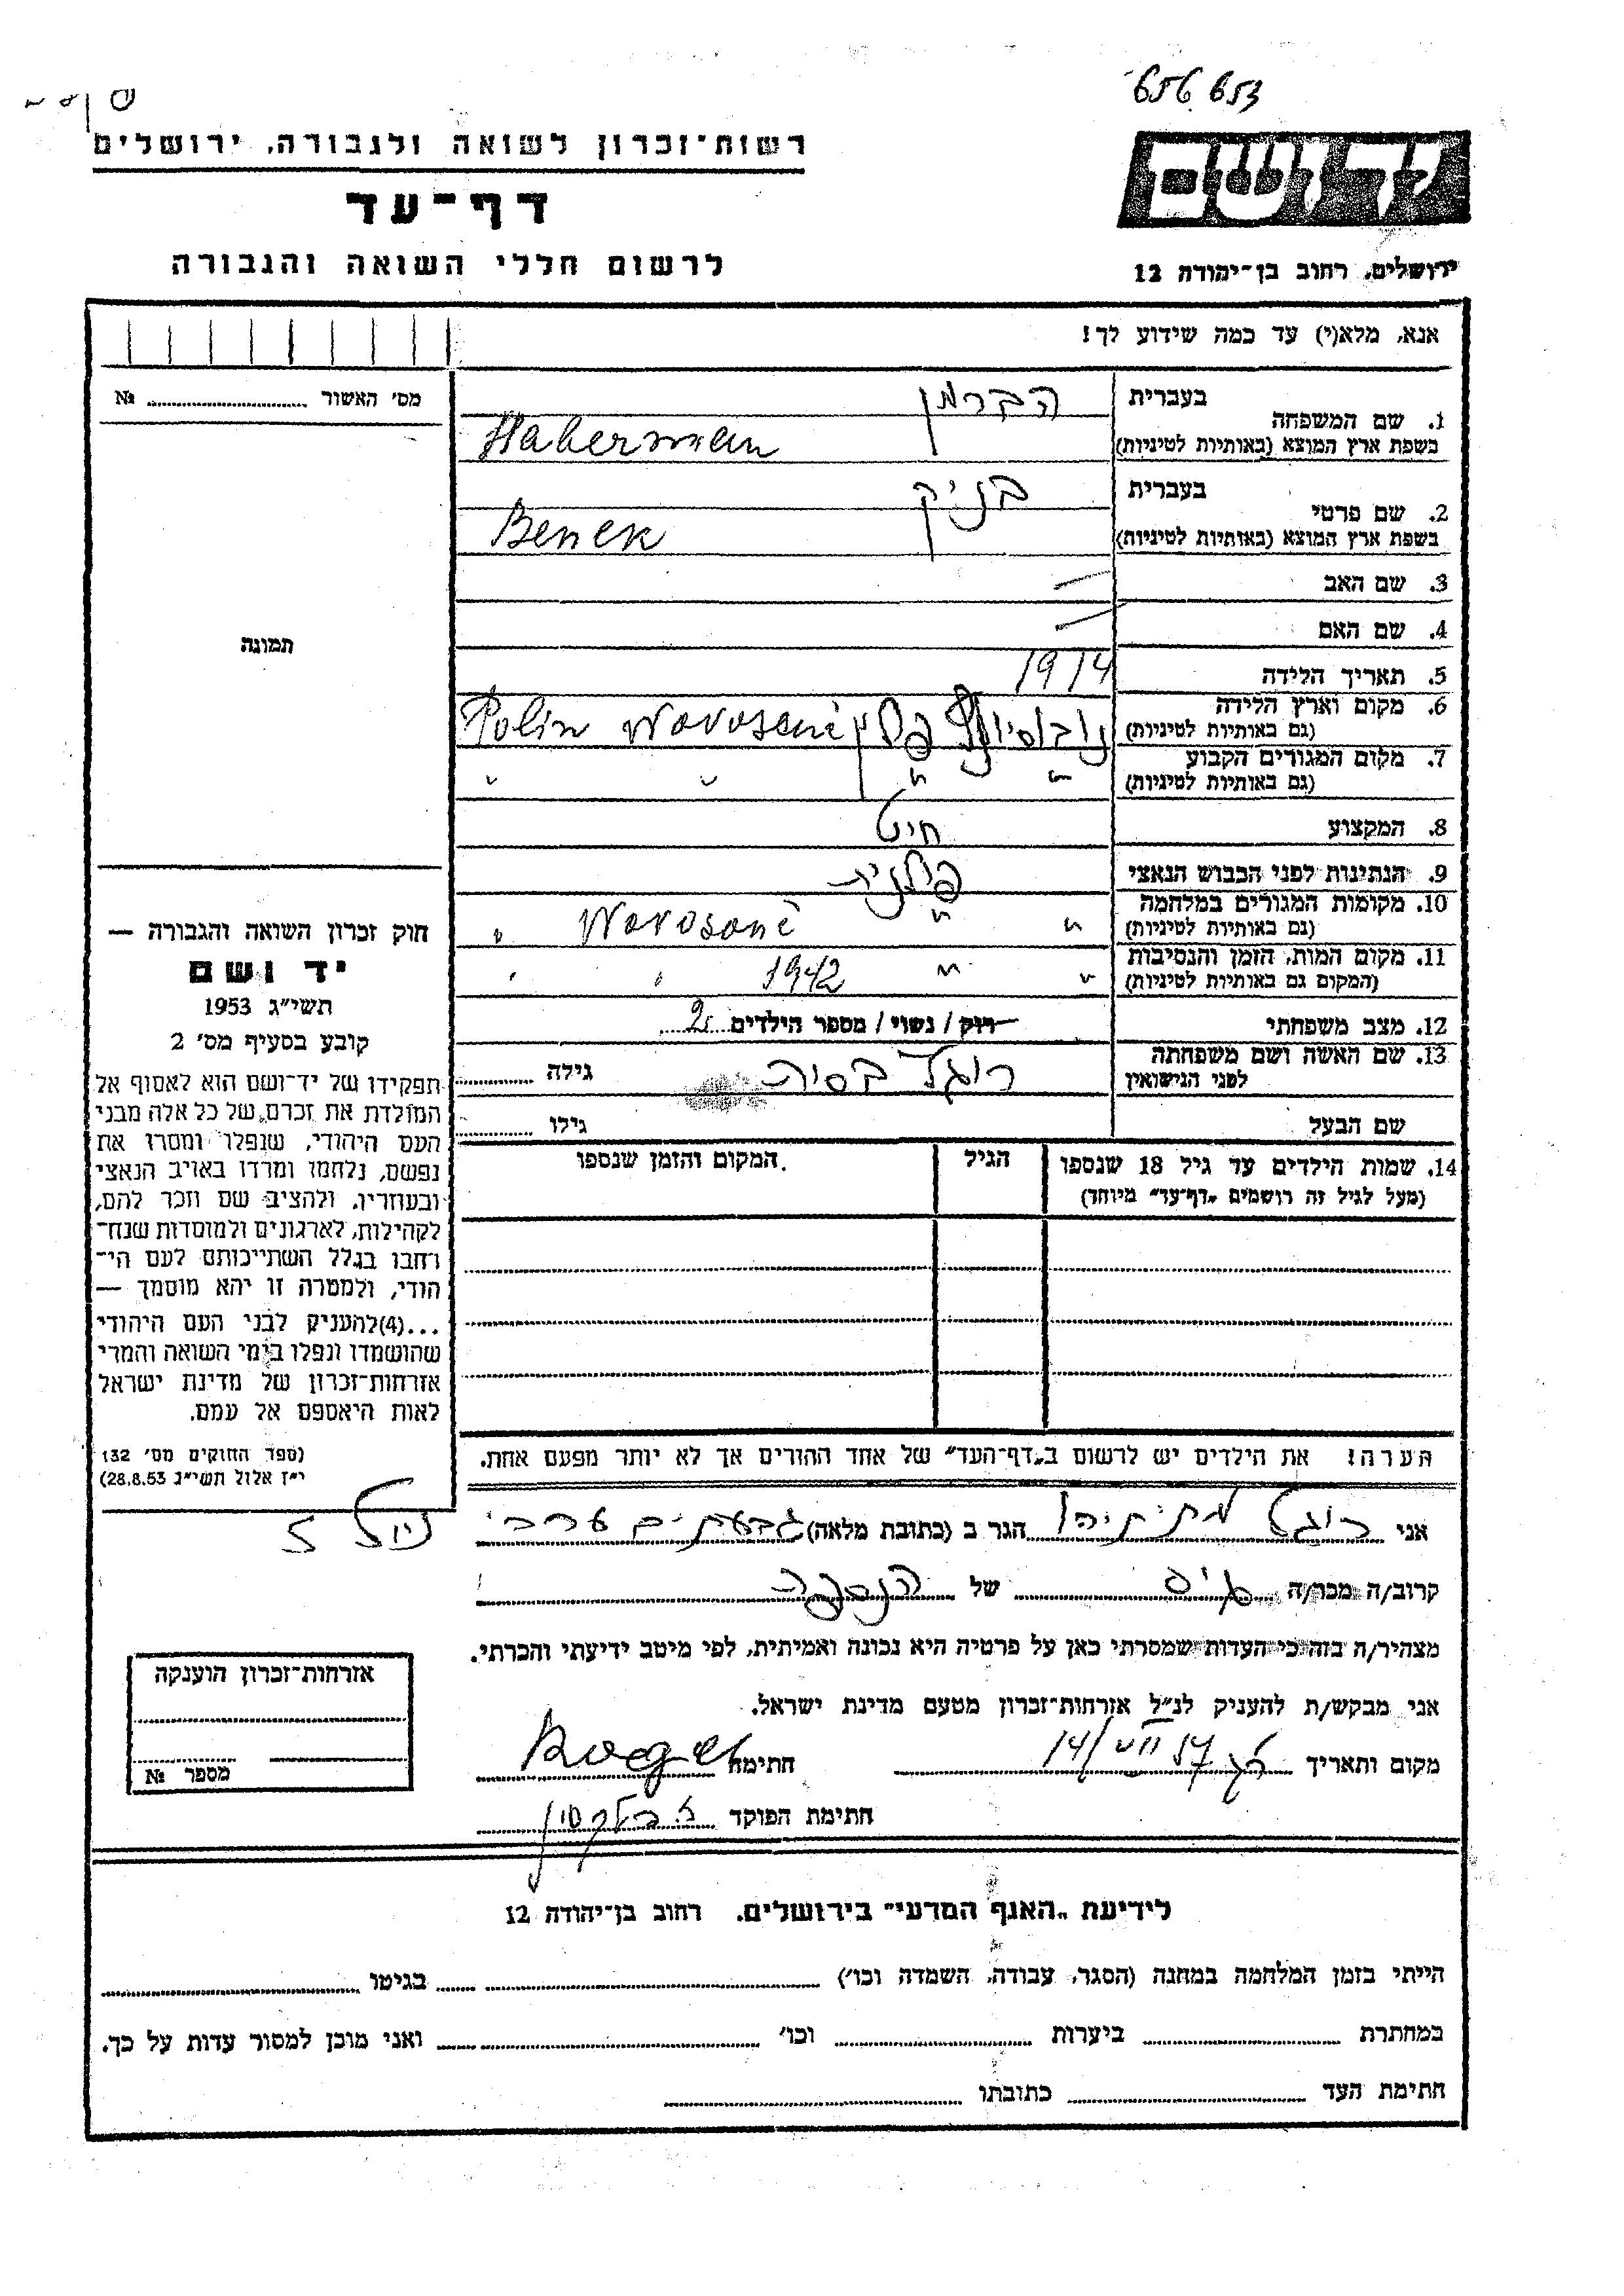 656 653
רשות־זכרון לשואה ולגבורה, ירושלים
דף־עד
לרשום חללי השואה והגבורה
יד ושם
ירושלים, רחוב בן־יהודה 12
אנא, מלא(י) עד כמה שידוע לך!
מס׳ האשור № 
תמונה
1. שם המשפחה בעברית הברמן
בשפת ארץ המוצא (באותיות לטיניות) Haberman
2. שם פרטי בעברית בניק
בשפת ארץ המוצא (באותיות לטיניות) Benek
3. שם האב —
4. שם האם —
5. תאריך הלידה 1914
6. מקום וארץ הלידה פולין Polin Wovosone
(גם באותיות לטיניות)
7. מקום המגורים הקבוע " " " "
(גם באותיות לטיניות)
8. המקצוע חיט
9. הנתינות לפני הכבוש הנאצי פולנית
10. מקומות המגורים במלחמה " " Wovosone "
(גם באותיות לטיניות)
11. מקום המות, הזמן והנסיבות " " 1942 " "
(המקום גם באותיות לטיניות)
12. מצב משפחתי רוק / נשוי / מספר הילדים 2
13. שם האשה ושם משפחתה לפני הנישואין רוגל בסיה גילה
שם הבעל גילו
14. שמות הילדים עד גיל 18 שנספו הגיל המקום והזמן שנספו.
(מעל לגיל זה רושמים „דף־עד" מיוחד)
חוק זכרון השואה והגבורה —
יד ושם
תשי"ג 1953
קובע בסעיף מס׳ 2
תפקידו של יד־ושם הוא לאסוף אל
המולדת את זכרם של כל אלה מבני
העם היהודי, שנפלו ומסרו את
נפשם, נלחמו ומרדו באויב הנאצי
ובעוזריו, ולהציב שם וזכר להם,
לקהילות, לארגונים ולמוסדות שנח־
רחבו בגלל השתייכותם לעם הי־
הודי, ולמטרה זו יהא מוסמך —
...(4)להעניק לבני העם היהודי
שהושמדו ונפלו בימי השואה והמרי
אזרחות־זכרון של מדינת ישראל
לאות היאספם אל עמם.
(ספר החוקים מס׳ 132
י"ז אלול תשי"ג 28.8.53)
הערה! את הילדים יש לרשום ב„דף־העד" של אחד ההורים אך לא יותר מפעם אחת.
אני רוגל מתיתיהו הגר ב (כתובת מלאה) גבעתיים ערבי נחל 2
קרוב/ה מכר/ה גיס של הנספה
מצהיר/ה בזה כי העדות שמסרתי כאן על פרטיה היא נכונה ואמיתית, לפי מיטב ידיעתי והכרתי.
אני מבקש/ת להעניק לנ"ל אזרחות־זכרון מטעם מדינת ישראל.
מקום ותאריך 14/VII 57 חתימה Roegel
חתימת הפוקד
אזרחות־זכרון הוענקה
מספר №
לידיעת „האגף המדעי" בירושלים. רחוב בן־יהודה 12
הייתי בזמן המלחמה במחנה (הסגר, עבודה, השמדה וכו׳) בגיטו
במחתרת ביערות וכו׳ ואני מוכן למסור עדות על כך.
חתימת העד כתובתו